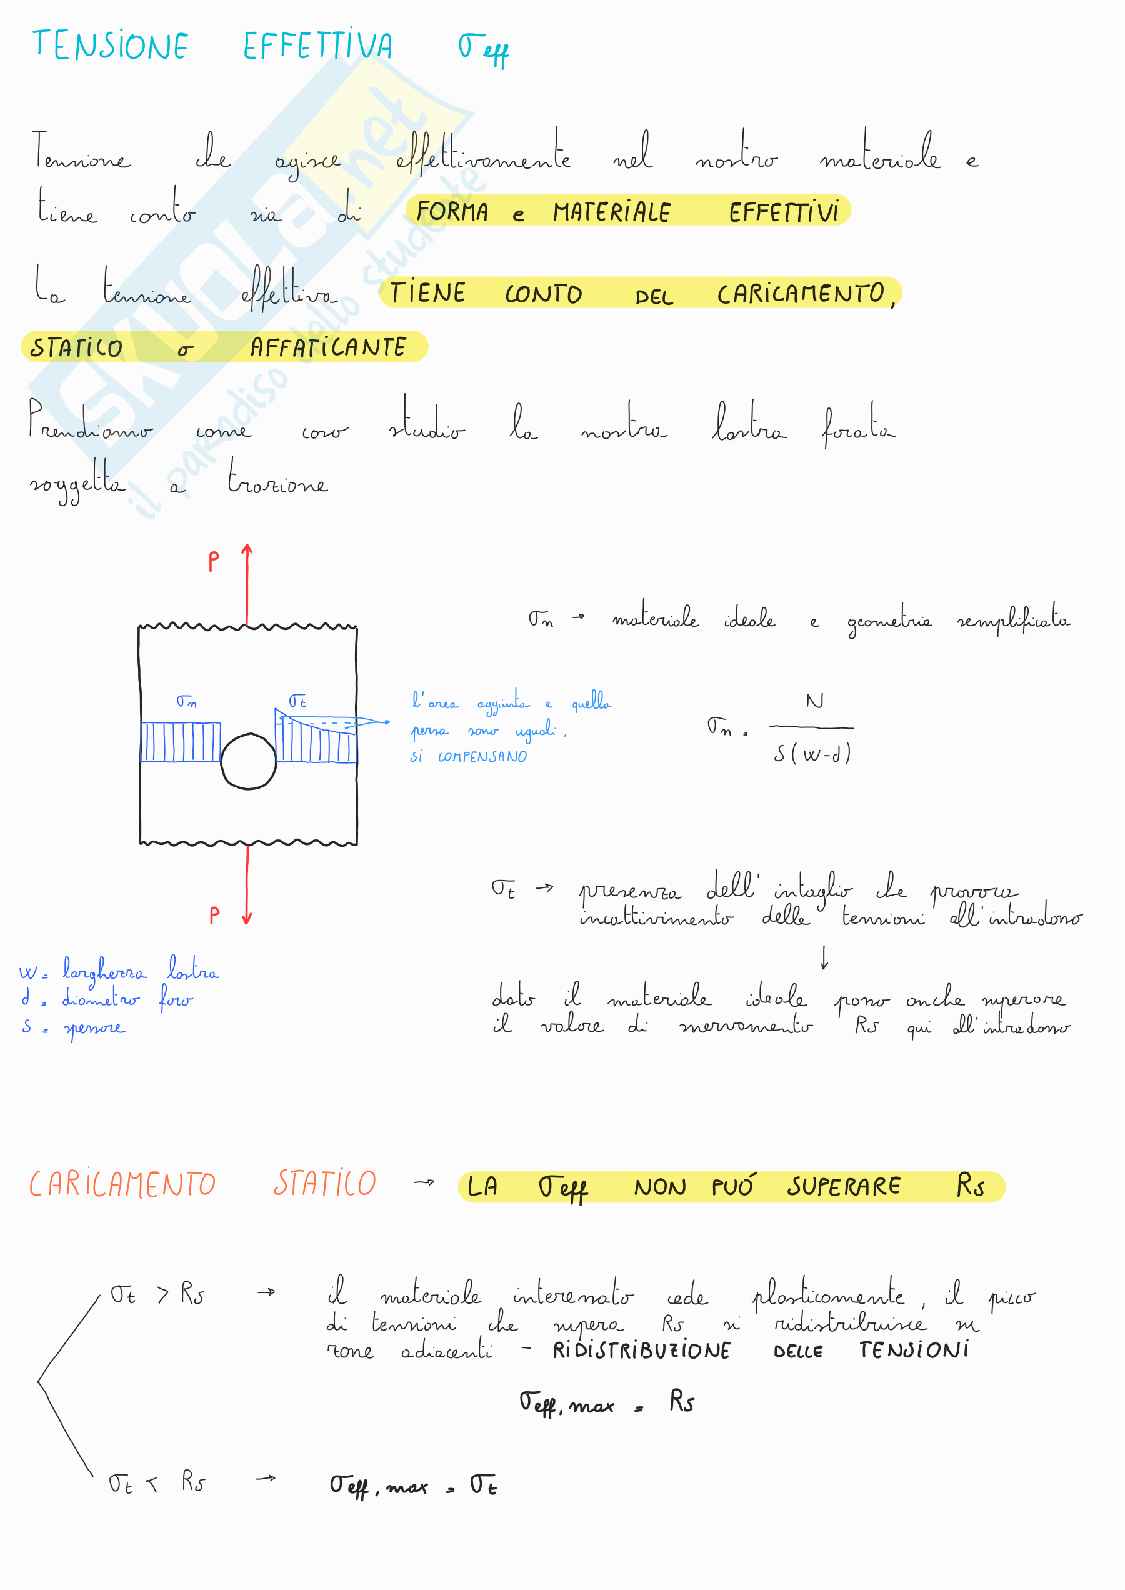 TENSIONE EFFETTIVA σeff
Tensione che agisce effettivamente nel nostro materiale e
tiene conto sia di FORMA e MATERIALE EFFETTIVI
La tensione effettiva TIENE CONTO DEL CARICAMENTO,
STATICO o AFFATICANTE
Prendiamo come caso studio la nostra lastra forata
soggetta a trazione
P
σn → materiale ideale e geometria semplificata
σn
σt
l'area aggiunta e quella
persa sono uguali,
si COMPENSANO
σn = N / S(W-d)
σt → presenza dell'intaglio che provoca
incattivimento delle tensioni all'intradosso
↓
P
W = larghezza lastra
d = diametro foro
S = spessore
dato il materiale ideale posso anche superare
il valore di snervamento Rs qui all'intradosso
CARICAMENTO STATICO → LA σeff NON PUÓ SUPERARE Rs
σt > Rs → il materiale interessato cede plasticamente, il picco
di tensioni che supera Rs si ridistribuisce su
zone adiacenti - RIDISTRIBUZIONE DELLE TENSIONI
σeff, max = Rs
σt < Rs → σeff, max = σt
SKUOLA.net
il paradiso dello studente